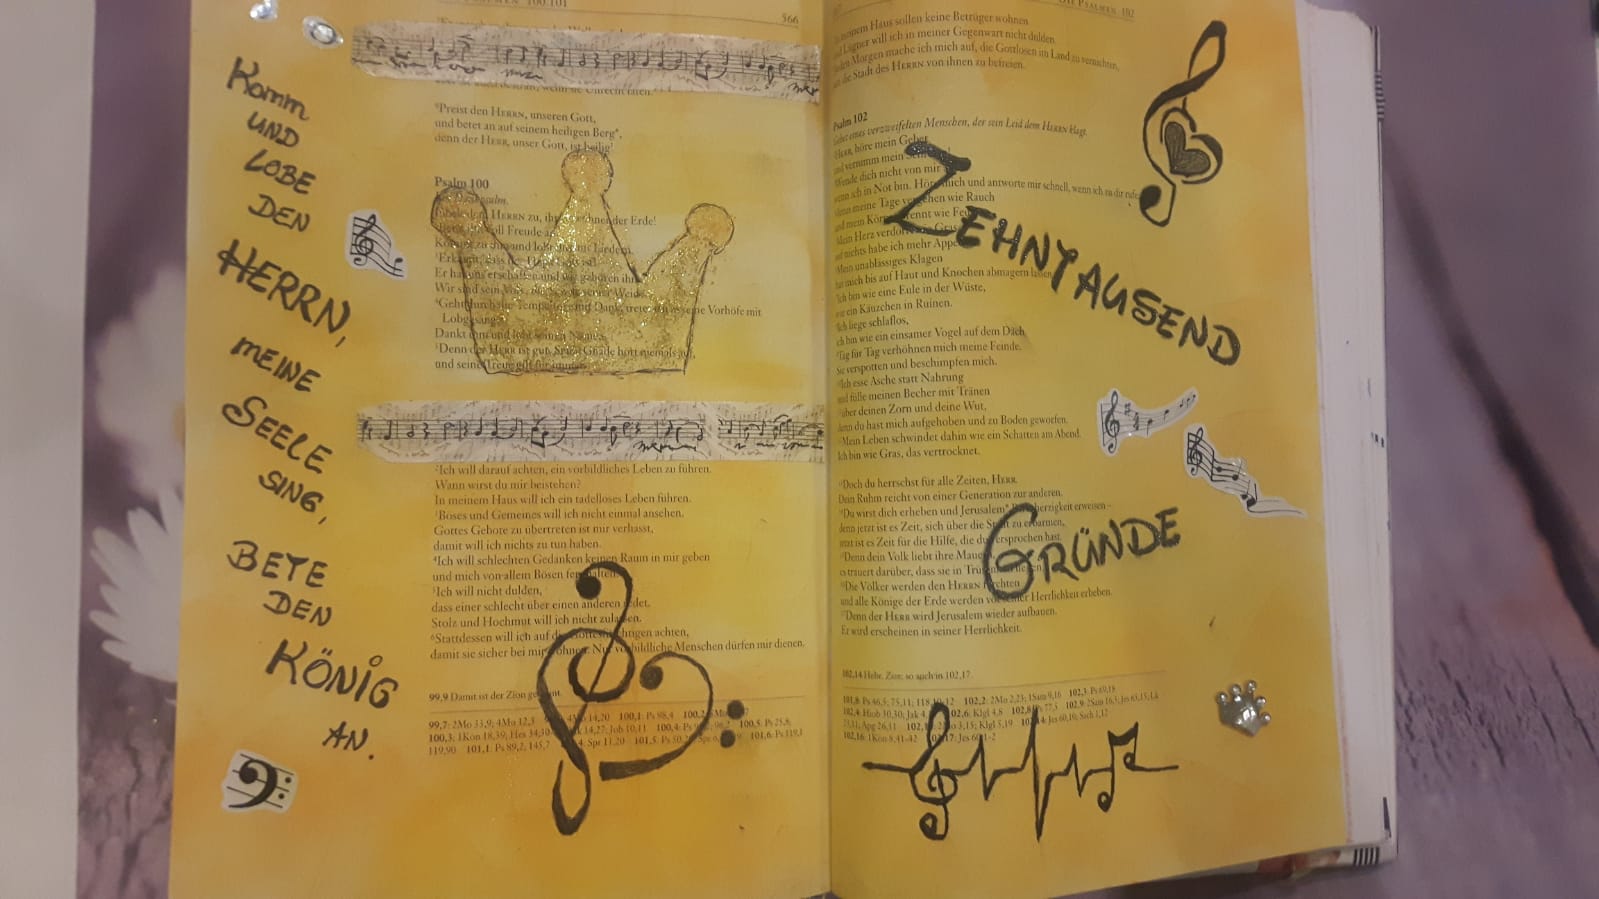 PSALMEN 100.101
566
Komm
UND
LOBE
DEN
HERRN,
MEINE
SEELE
SING,
BETE
DEN
KÖNIG
AN.
Preist den HERRN, unseren Gott,
und betet an auf seinem heiligen Berg*,
denn der HERR, unser Gott, ist heilig!
Psalm 100
HERRN zu, der Erde!
voll Freude
Er hat uns erschaffen und wir gehören
Wir sind sein
Vorhöfe mit
Lobgesang
Dankt ihm und lobt seinen Namen.
Denn der HERR ist gut. Seine Gnade hört niemals auf,
und seine Treue gilt für immer.
²Ich will darauf achten, ein vorbildliches Leben zu führen.
Wann wirst du mir beistehen?
In meinem Haus will ich ein tadelloses Leben führen.
³Böses und Gemeines will ich nicht einmal ansehen.
Gottes Gebote zu übertreten ist nur verhasst,
damit will ich nichts zu tun haben.
⁴Ich will schlechten Gedanken keinen Raum in mir geben
und mich von allem Bösen fernhalten.
⁵Ich will nicht dulden,
dass einer schlecht über einen anderen redet.
Stolz und Hochmut will ich nicht zulassen.
⁶Stattdessen will ich auf die achten,
damit sie sicher bei mir wohnen. Nur vorbildliche Menschen dürfen mir dienen.
99,9 Damit ist der Zion gemeint.
99,7: 2Mo 33,9; 4Mo 12,5
100,3: 1Kön 18,39; Hes 34,30
119,90 101,1: Ps 89,2; 145,7
DIE PSALMEN 102
meinem Haus sollen keine Betrüger wohnen
und Lügner will ich in meiner Gegenwart nicht dulden.
Jeden Morgen mache ich mich auf, die Gottlosen im Land zu vernichten,
um die Stadt des HERRN von ihnen zu befreien.
Psalm 102
Gebet eines verzweifelten Menschen, der sein Leid dem HERRN klagt.
HERR, höre mein Gebet
und vernimm mein
Wende dich nicht von mir
wenn ich in Not bin. Hör mich und antworte mir schnell, wenn ich zu dir rufe
Denn meine Tage vergehen wie Rauch
und mein Körper brennt wie
Mein Herz
nichts habe ich mehr
Mein unablässiges Klagen
hat mich bis auf Haut und Knochen abmagern lassen
Ich bin wie eine Eule in der Wüste,
wie ein Käuzchen in Ruinen.
Ich liege schlaflos,
ich bin wie ein einsamer Vogel auf dem Dach.
Tag für Tag verhöhnen mich meine Feinde.
Sie verspotten und beschimpfen mich.
Ich esse Asche statt Nahrung
und fülle meinen Becher mit Tränen
über deinen Zorn und deine Wut,
denn du hast mich aufgehoben und zu Boden geworfen.
Mein Leben schwindet dahin wie ein Schatten am Abend.
Ich bin wie Gras, das vertrocknet.
ZEHNTAUSEND
Doch du herrschst für alle Zeiten, HERR.
Dein Ruhm reicht von einer Generation zur anderen.
Du wirst dich erheben und Jerusalem* Barmherzigkeit erweisen –
denn jetzt ist es Zeit, sich über die Stadt zu erbarmen,
jetzt ist es Zeit für die Hilfe, die du versprochen hast.
Denn dein Volk liebt ihre Mauern
es trauert darüber, dass sie in Trümmern liegen.
Die Völker werden den HERRN fürchten
und alle Könige der Erde werden vor seiner Herrlichkeit erbeben.
Denn der HERR wird Jerusalem wieder aufbauen.
Er wird erscheinen in seiner Herrlichkeit.
GRÜNDE
102,14 Hebr. Zion; so auch in 102,17.
101,8: Ps 46,5; 75,11; 118,10-12 102,2: 2Mo 2,23; 1Sam 9,16 102,3: Ps 69,18
102,4: Hiob 30,30; Jak 4, 102,6: Klgl 4,8
102,16: 1Kön 8,41-42 102,17: Jes 60,1-2